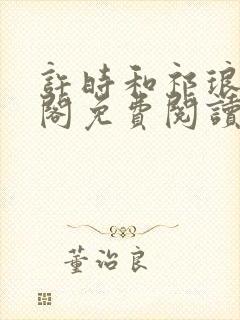 許時和祁琅
閣免費閱讀
董治良